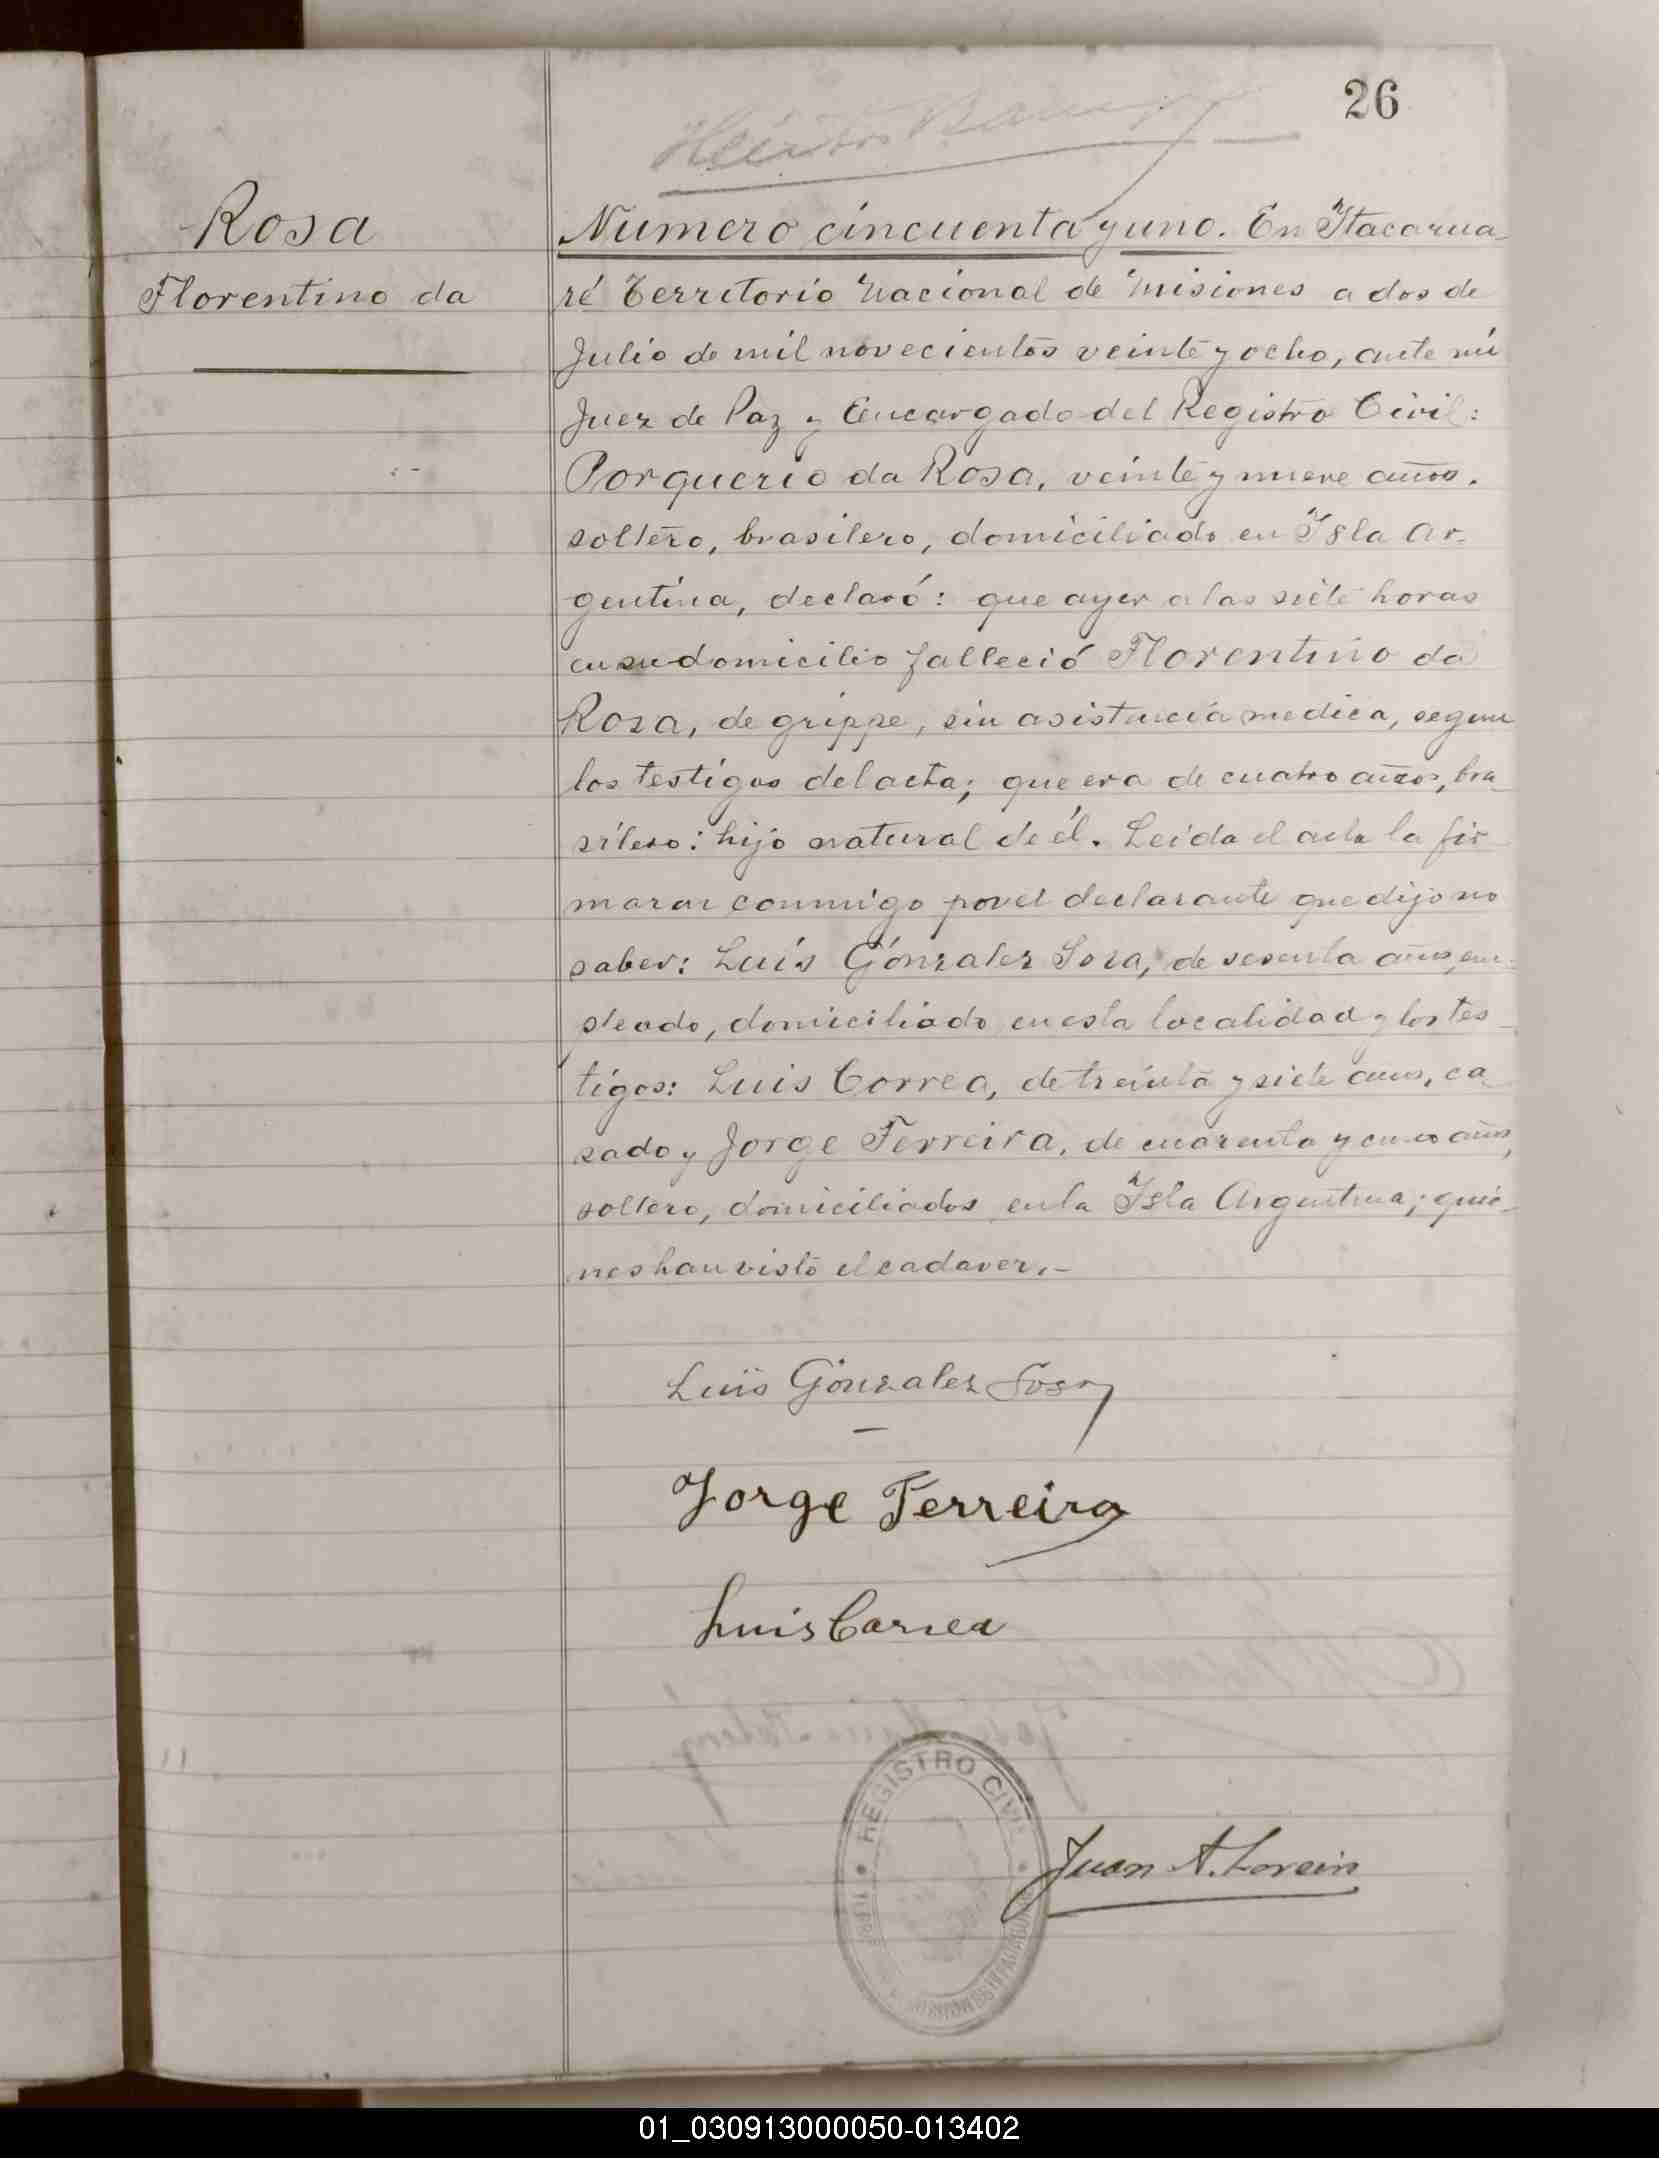 26
Rosa
Florentino da
Numero cincuenta y uno. En Itacarua-
ré Territorio Nacional de Misiones a dos de
Julio de mil novecientos veinte y ocho, ante mi
Juez de Paz y Encargado del Registro Civil:
Porquerio da Rosa, veinte y nueve años.
soltero, brasilero, domiciliado en Isla Ar-
gentina, declaró: que ayer a las siete horas
en su domicilio falleció Florentino da
Rosa, de grippe, sin asistencia medica, segun
los testigos del acta; que era de cuatro años, bra-
silero: hijo natural de él. Leida el acta la fir
maron conmigo por el declarante que dijo no
saber: Luis Gónzalez Sosa, de sesenta años, em-
pleado, domiciliado en esta localidad y los tes-
tigos: Luis Correa, de treinta y siete años, ca-
sado y Jorge Ferreira, de cuarenta y cinco años,
soltero, domiciliados en la Isla Argentina; quie-
nes han visto el cadaver.-
Luis Gónzalez Sosa
Jorge Ferreira
Luis Correa
REGISTRO CIVIL
Juan A.
01_030913000050-013402